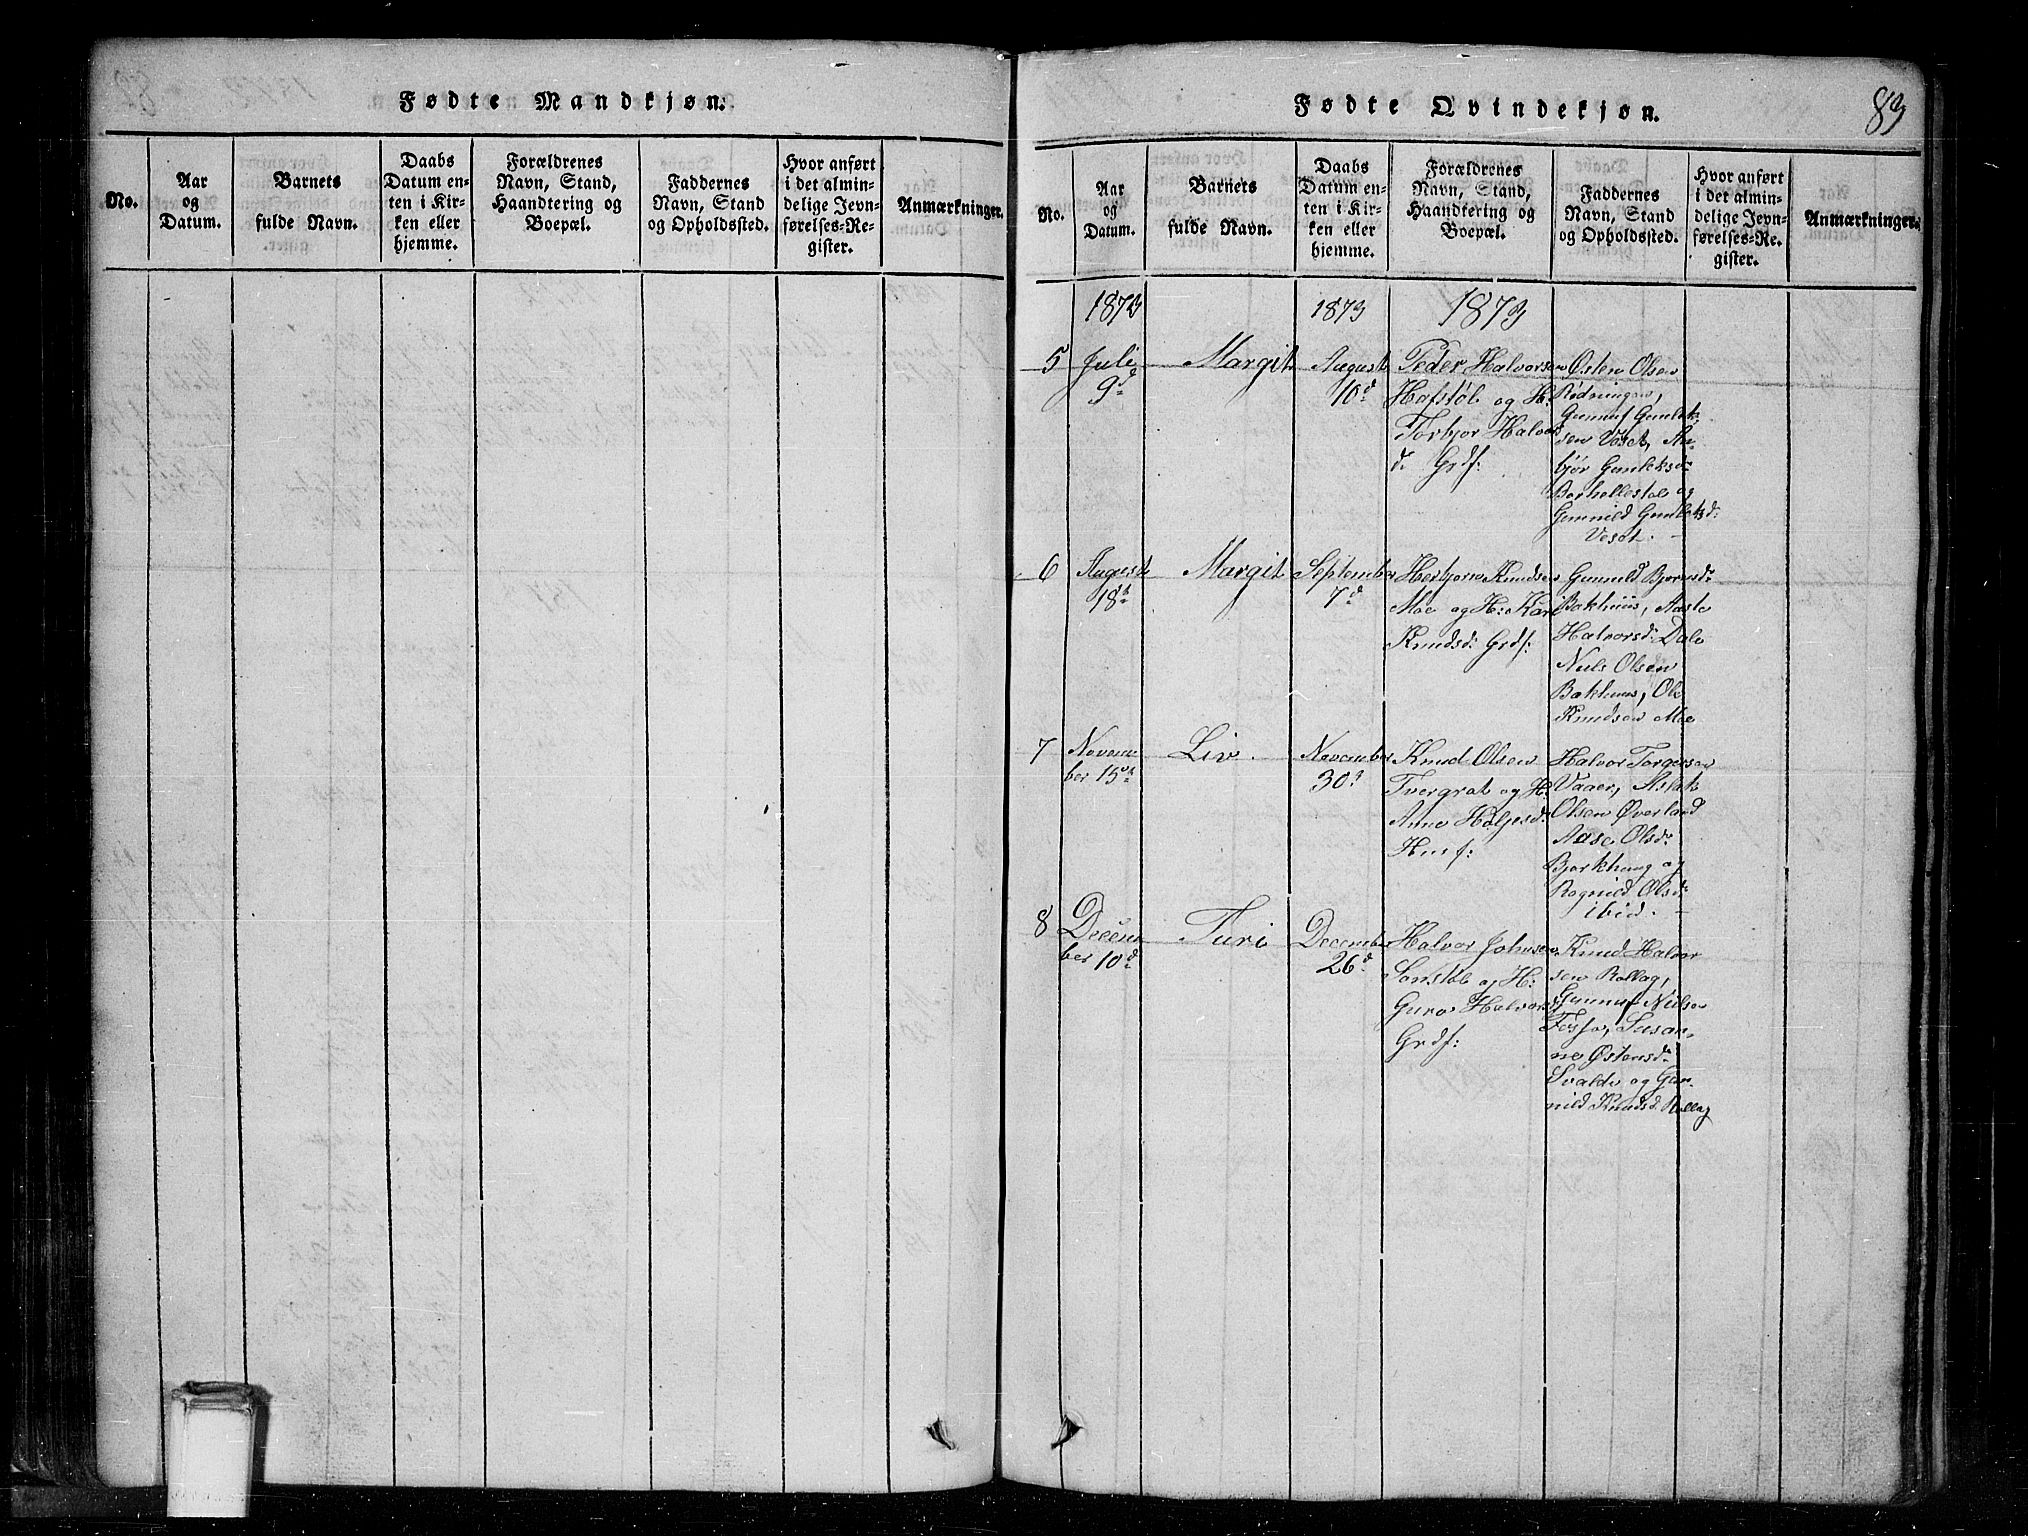 Fødte Mandkjøn.
No.
Aar
og
Datum.
Barnets
fulde Navn.
Daabs
Datum en-
ten i Kir-
ken eller
hjemme.
Forældrenes
Navn, Stand,
Haandtering og
Boepæl.
Faddernes
Navn, Stand
og Opholdssted.
Hvor anført
i det almin-
delige Jevn-
førelses-Re-
gister.
Anmærkninger.
Fødte Qvindekjøn.
83
No.
Aar
og
Datum.
Barnets
fulde Navn.
Daabs
Datum en-
ten i Kir-
ken eller
hjemme.
Forældrenes
Navn, Stand,
Haandtering og
Boepæl.
Faddernes
Navn, Stand
og Opholdssted.
Hvor anført
i det almin-
delige Jevn-
førelses-Re-
gister.
Anmærkninger.
1873
1873
1873
5
Juli
9d
Margit
August
10d
Peder Halvorsen
Hafstøl og H:
Torbjor Halvors
d: Grdf:
Østen Olsen
Rødningen,
Gunnuf Gunlek
sen Veset, An-
bjør Gunleksdr
og
Gunnild Gunleksd:
Veset. -
6
August
18n
Margit
September
7d
Herbjorn Knudsen
Moe og H: Kari
Knudsd: Grdf:
Gunnild Bjornsdr
Bakhuus, Aaste
Halvorsd: Dale
Niels Olsen
Bakhuus, Ole
Knudsen Moe
7
Novem
ber 15n
Liv.
November
30d
Knud Olsen
Tvergrat og H:
Anne Helgesd:
Husf:
Halvor Torgersen
Vaaer, Aslak
Olsen Øverland
Aase Olsdr
Bjorkhaug og
Ragnild Olsdr
ibid. -
8
Decem
ber 10d
Turi
December
26d
Halvor Johnsen
Sonstøl og H:
Guro Halvorsd
Grdf:
Knud Halvor
sen Rollag,
Gunnuf Nielsen
Fosso, Susan-
ne Østensdr
Svalde og Gun-
nild Knudsd: Rollag